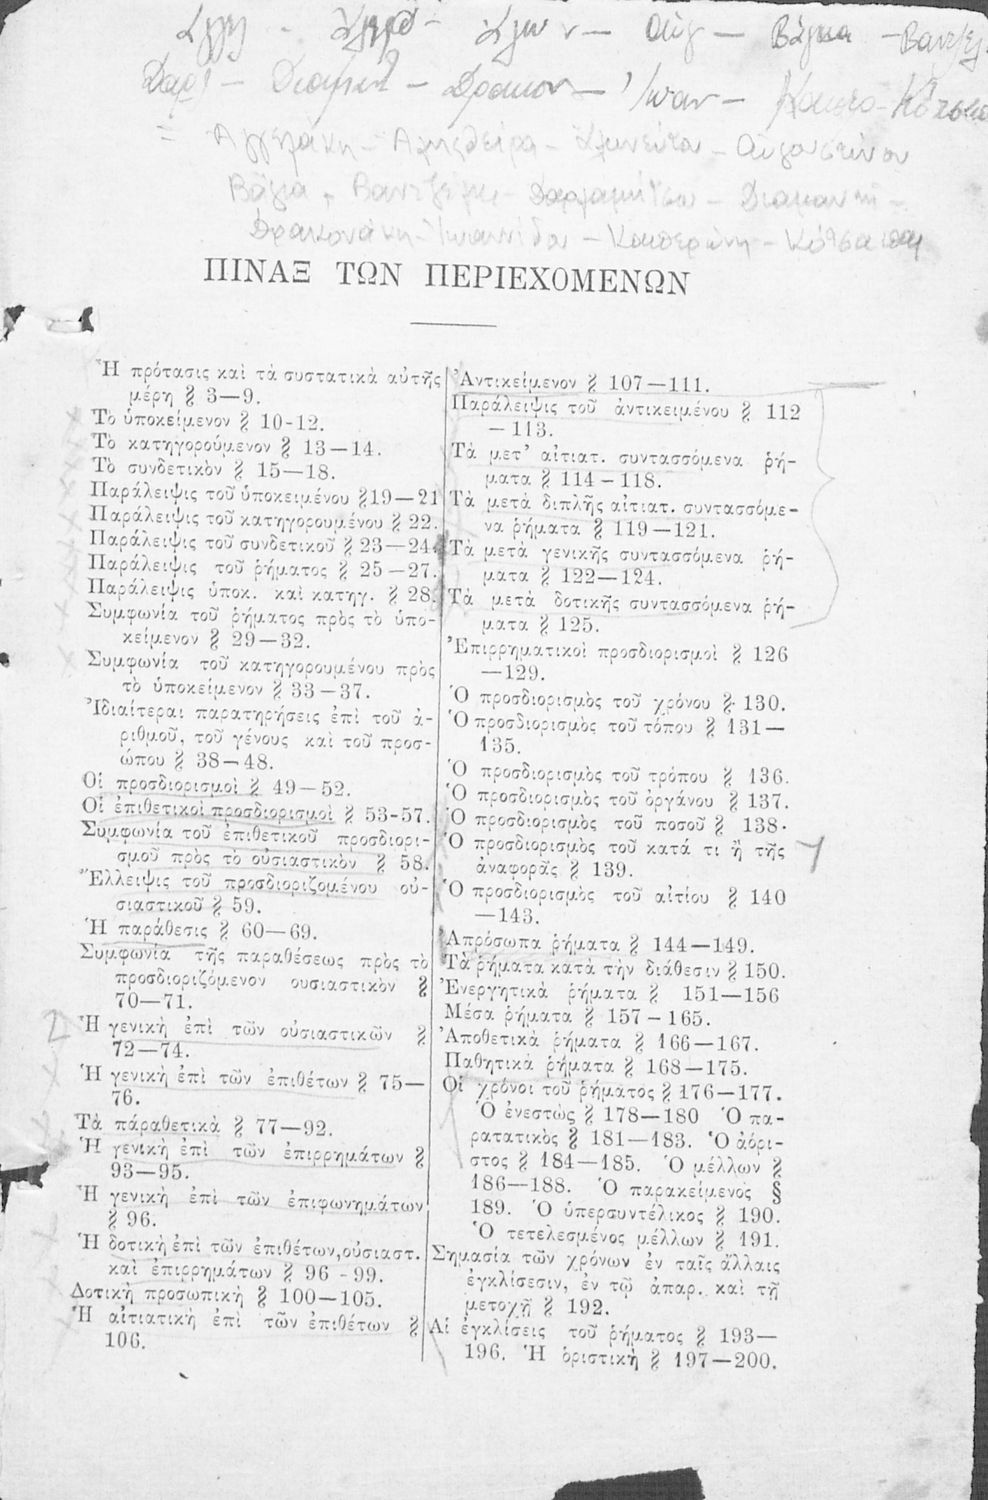 Βάγια
Δραγ - Διαμαντ - Δρακον -
Ἀγγελάκη - Αὐγουστίνου
Βάγια - Διαμαντῆ -
Δρακονάκη - Ἰωαννίδου -
ΠΙΝΑΞ ΤΩΝ ΠΕΡΙΕΧΟΜΕΝΩΝ
Ἡ πρότασις καὶ τὰ συστατικὰ αὐτῆς
μέρη § 3—9.
Τὸ ὑποκείμενον § 10-12.
Τὸ κατηγορούμενον § 13—14.
Τὸ συνδετικὸν § 15—18.
Παράλειψις τοῦ ὑποκειμένου §19—21
Παράλειψις τοῦ κατηγορουμένου § 22.
Παράλειψις τοῦ συνδετικοῦ § 23—24.
Παράλειψις τοῦ ῥήματος § 25—27.
Παράλειψις ὑποκ. καὶ κατηγ. § 28.
Συμφωνία τοῦ ῥήματος πρὸς τὸ ὑπο-
κείμενον § 29—32.
Συμφωνία τοῦ κατηγορουμένου πρὸς
τὸ ὑποκείμενον § 33—37.
Ἰδιαίτεραι παρατηρήσεις ἐπὶ τοῦ ἀ-
ριθμοῦ, τοῦ γένους καὶ τοῦ προσ-
ώπου § 38—48.
Οἱ προσδιορισμοὶ § 49—52.
Οἱ ἐπιθετικοὶ προσδιορισμοὶ § 53-57.
Συμφωνία τοῦ ἐπιθετικοῦ προσδιορι-
σμοῦ πρὸς τὸ οὐσιαστικὸν § 58.
Ἔλλειψις τοῦ προσδιοριζομένου οὐ-
σιαστικοῦ § 59.
Ἡ παράθεσις § 60—69.
Συμφωνία τῆς παραθέσεως πρὸς τὸ
προσδιοριζόμενον ουσιαστικὸν §
70—71.
Ἡ γενικὴ ἐπὶ τῶν οὐσιαστικῶν §
72—74.
Ἡ γενικὴ ἐπὶ τῶν ἐπιθέτων § 75—
76.
Τὰ πάραθετικὰ § 77—92.
Ἡ γενικὴ ἐπὶ τῶν ἐπιρρημάτων §
93—95.
Ἡ γενικὴ ἐπὶ τῶν ἐπιφωνημάτων
§ 96.
Ἡ δοτικὴ ἐπὶ τῶν ἐπιθέτων, οὐσιαστ.
καὶ ἐπιρρημάτων § 96 -99.
Δοτικὴ προσωπικὴ § 100—105.
Ἡ αἰτιατικὴ ἐπὶ τῶν ἐπιθέτων §
106.
Ἀντικείμενον § 107—111.
Παράλειψις τοῦ ἀντικειμένου § 112
—113.
Τὰ μετ' αἰτιατ. συντασσόμενα ῥή-
ματα § 114—118.
Τὰ μετὰ διπλῆς αἰτιατ. συντασσόμε-
να ῥήματα § 119—121.
Τὰ μετὰ γενικῆς συντασσόμενα ῥή-
ματα § 122—124.
Τὰ μετὰ δοτικῆς συντασσόμενα ῥή-
ματα § 125.
Ἐπιρρηματικοὶ προσδιορισμοὶ § 126
—129.
Ὁ προσδιορισμὸς τοῦ χρόνου § 130.
Ὁ προσδιορισμὸς τοῦ τόπου § 131—
135.
Ὁ προσδιορισμὸς τοῦ τρόπου § 136.
Ὁ προσδιορισμὸς τοῦ ὀργάνου § 137.
Ὁ προσδιορισμὸς τοῦ ποσοῦ § 138.
Ὁ προσδιορισμὸς τοῦ κατά τι ἢ τῆς
ἀναφορᾶς § 139.
Ὁ προσδιορισμὸς τοῦ αἰτίου § 140
—143.
Ἀπρόσωπα ῥήματα § 144—149.
Τὰ ῥήματα κατὰ τὴν διάθεσιν § 150.
Ἐνεργητικὰ ῥήματα § 151—156
Μέσα ῥήματα § 157—165.
Ἀποθετικὰ ῥήματα § 166—167.
Παθητικὰ ῥήματα § 168—175.
Οἱ χρόνοι τοῦ ῥήματος § 176—177.
Ὁ ἐνεστὼς § 178—180 Ὁ πα-
ρατατικὸς § 181—183. Ὁ ἀόρι-
στος § 184—185. Ὁ μέλλων §
186—188. Ὁ παρακείμενος §
189. Ὁ ὑπερσυντέλικος § 190.
Ὁ τετελεσμένος μέλλων § 191.
Σημασία τῶν χρόνων ἐν ταῖς ἄλλαις
ἐγκλίσεσιν, ἐν τῷ ἀπαρ. καὶ τῇ
μετοχῇ § 192.
Αἱ ἐγκλίσεις τοῦ ῥήματος § 193—
196. Ἡ ὁριστικὴ § 197—200.